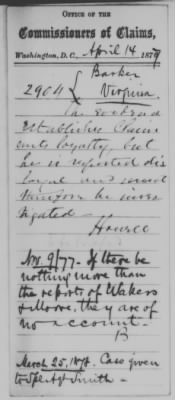 OFFICE OF THE
Commissioners of Claims,
Washington, D.C., April 14 1877
Barker
2904 { Virginia.
The evidence
establishes Claims
ants loyalty, but
he is reported dis
loyal and must
therefore be inves
tigated—
Howell
Nov. 9/77 - If there be
nothing more than
the reports of Wakers
& Moore, they are of
no account -
B
March 25, 1878. Case given
to Spl. Agt. Smith -